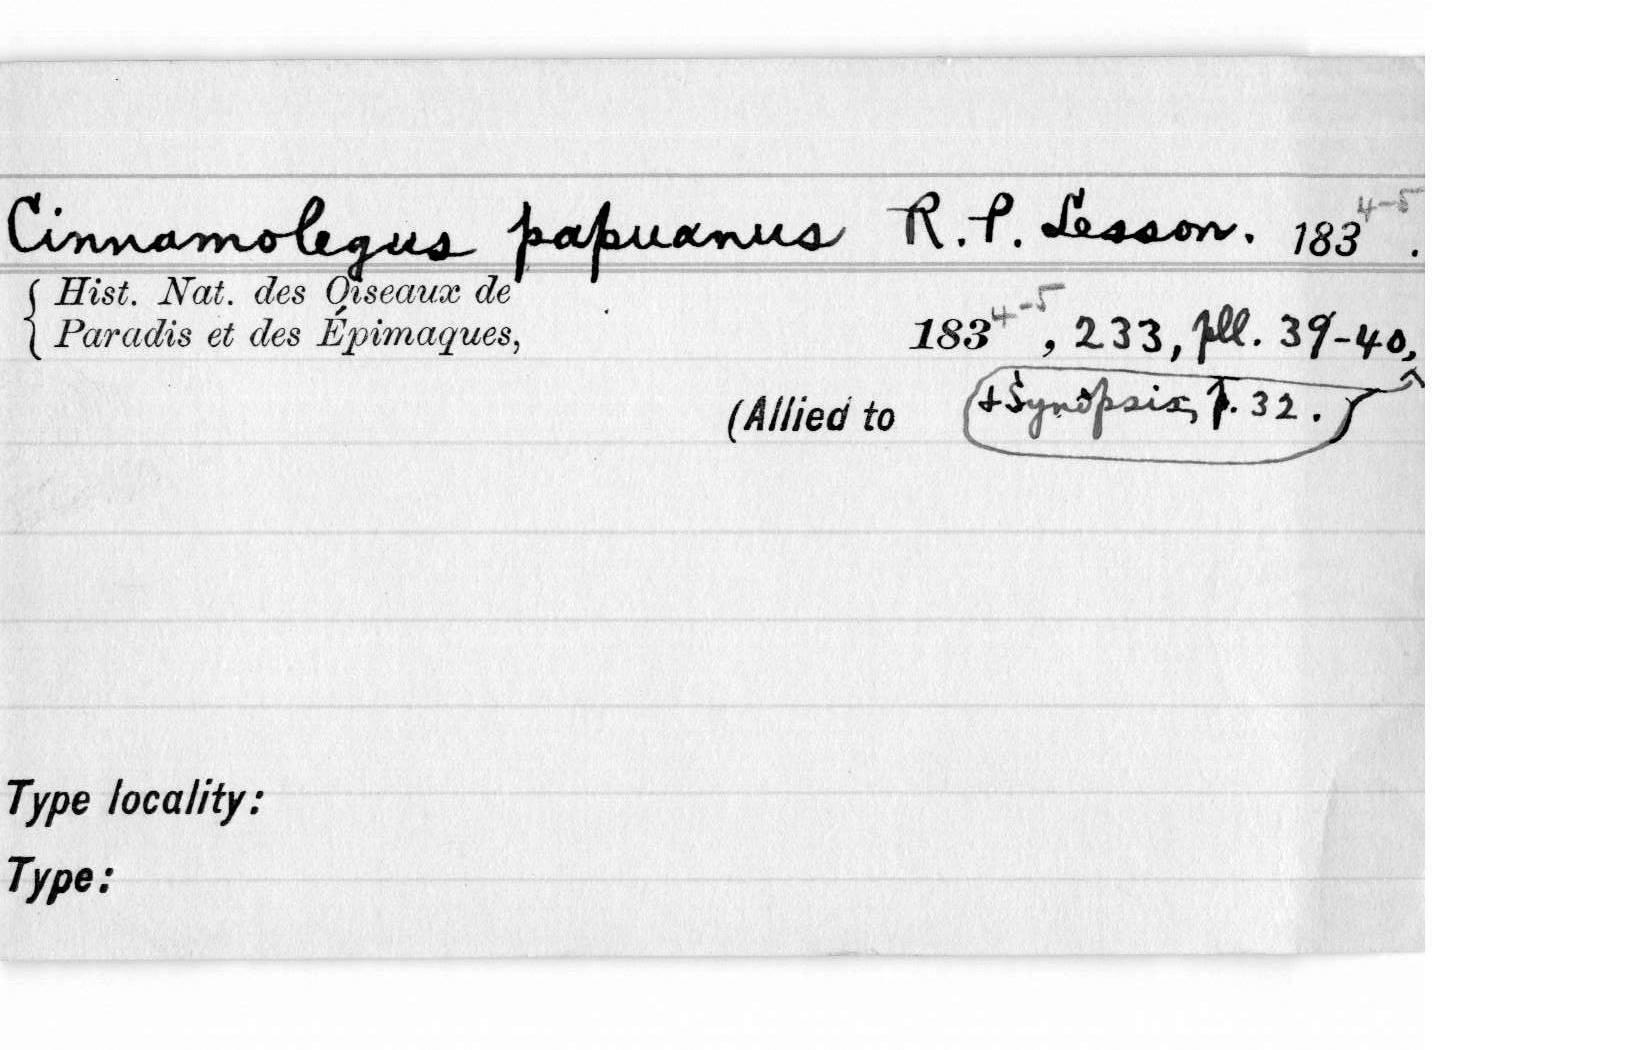 Cinnamolegus papuanus R. P. Lesson. 1834-5.
Hist. Nat. des Oiseaux de
Paradis et des Épimaques, 1834-5, 233, pll. 39-40,
(Allied to + Synopsis, p. 32.
Type locality:
Type: